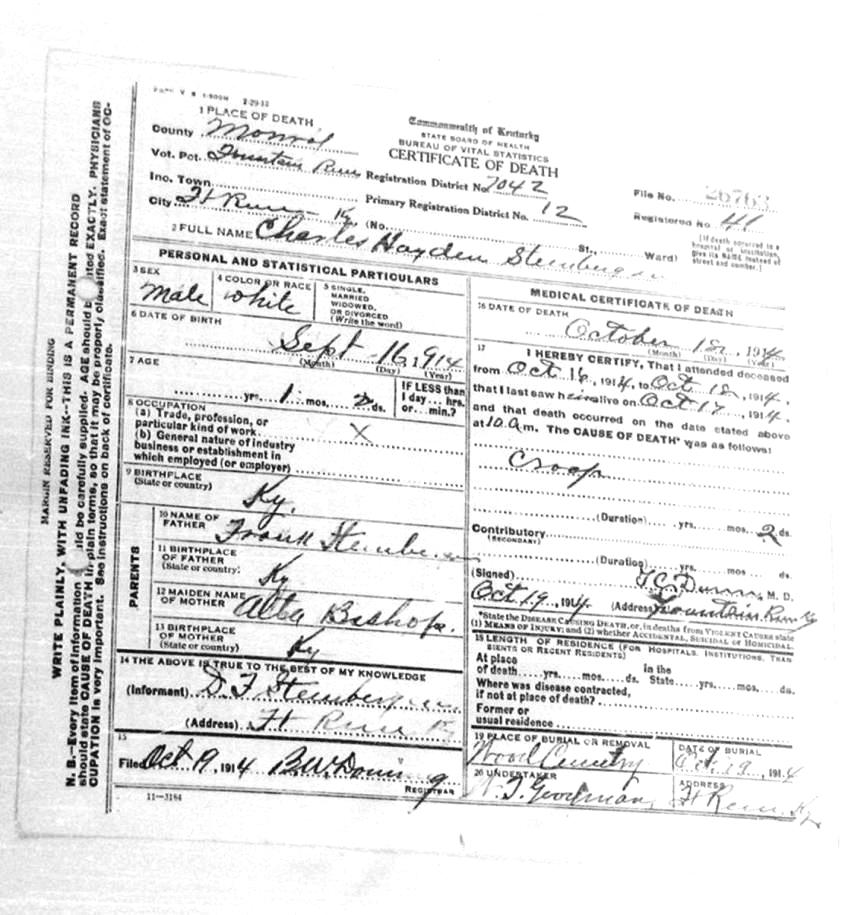 Form V S 1-500M 2-29-12
1 PLACE OF DEATH
County Monroe
Vot. Pct. Fountain Run
Inc. Town
City Ft Run Ky. (No. St., Ward)
Commonwealth of Kentucky
STATE BOARD OF HEALTH
BUREAU OF VITAL STATISTICS
CERTIFICATE OF DEATH
Registration District No. 7042
Primary Registration District No. 12
File No. 26763
Registered No. 41
[If death occurred in a
hospital or institution,
give its NAME instead of
street and number.]
2 FULL NAME Charles Hayden Steinbergen
PERSONAL AND STATISTICAL PARTICULARS
3 SEX
Male
4 COLOR OR RACE
white
5 SINGLE,
MARRIED
WIDOWED,
OR DIVORCED
(Write the word)
6 DATE OF BIRTH
Sept 16, 1914
(Month) (Day) (Year)
7 AGE
yrs. 1 mos. 2 ds.
IF LESS than
1 day... hrs.
or... min.?
8 OCCUPATION
(a) Trade, profession, or
particular kind of work X
(b) General nature of industry
business or establishment in
which employed (or employer)
9 BIRTHPLACE
(State or country)
Ky.
PARENTS
10 NAME OF
FATHER
Frank Steinbergen
11 BIRTHPLACE
OF FATHER
(State or country)
Ky
12 MAIDEN NAME
OF MOTHER
Alta Bishop.
13 BIRTHPLACE
OF MOTHER
(State or country)
Ky
14 THE ABOVE IS TRUE TO THE BEST OF MY KNOWLEDGE
(Informant) D. F. Steinbergen
(Address) Ft Run Ky
15
Filed Oct 19, 1914 B.W. Downing
REGISTRAR
11-3184
MEDICAL CERTIFICATE OF DEATH
16 DATE OF DEATH
October 18, 1914
(Month) (Day) (Year)
17 I HEREBY CERTIFY, That I attended deceased
from Oct 16, 1914, to Oct 18, 1914,
that I last saw him alive on Oct 17, 1914,
and that death occurred on the date stated above
at 10 a.m. The CAUSE OF DEATH* was as follows:
Croop
(Duration) yrs. mos. 2 ds.
Contributory
(SECONDARY)
(Duration) yrs. mos. ds.
(Signed) M. D.
Oct 19, 1914 (Address) Fountain Run Ky
*State the DISEASE CAUSING DEATH, or, in deaths from VIOLENT CAUSES state
(1) MEANS OF INJURY; and (2) whether ACCIDENTAL, SUICIDAL or HOMICIDAL.
18 LENGTH OF RESIDENCE (FOR HOSPITALS, INSTITUTIONS, TRANSIENTS OR RECENT RESIDENTS)
At place
of death yrs. mos. ds.
In the
State yrs. mos. ds.
Where was disease contracted,
if not at place of death?
Former or
usual residence
19 PLACE OF BURIAL OR REMOVAL
Wood Cemetry
DATE OF BURIAL
Oct 19, 1914
20 UNDERTAKER
T. Goodman,
ADDRESS
Ft Run, Ky
MARGIN RESERVED FOR BINDING
WRITE PLAINLY, WITH UNFADING INK--THIS IS A PERMANENT RECORD
N. B.--Every item of information should be carefully supplied. AGE should be stated EXACTLY. PHYSICIANS
should state CAUSE OF DEATH in plain terms, so that it may be properly classified. Exact statement of OC-
CUPATION is very important. See instructions on back of certificate.